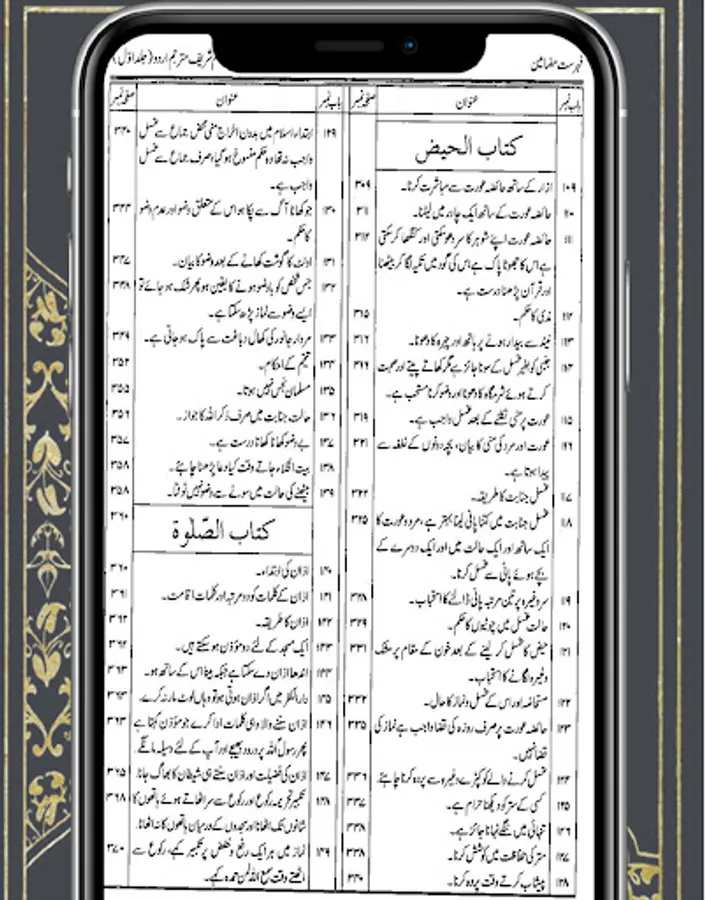 فہرست مضامین
شریف مترجم اردو (جلد اوّل)
باب نمبر عنوان صفحہ نمبر
کتاب الحیض
۱۰۹ ازار کے ساتھ حائضہ عورت سے مباشرت کرنا۔ ۳۰۹
۱۱۰ حائضہ عورت کے ساتھ ایک چادر میں لیٹنا۔ ۳۱۱
۱۱۱ حائضہ عورت اپنے شوہر کا سر دھو سکتی اور کنگھا کر سکتی ۳۱۲
ہے اس کا جھوٹا پاک ہے اس کی گود میں تکیہ لگا کر بیٹھنا
اور قرآن پڑھنا درست ہے۔
۱۱۲ مذی کا حکم۔ ۳۱۵
۱۱۳ نیند سے بیدار ہونے پر ہاتھ اور چہرہ کا دھونا۔ ۳۱۶
۱۱۴ جنبی کو بغیر غسل کے سونا جائز ہے مگر کھاتے پیتے اور صحبت ۳۱۶
کرتے ہوئے شرمگاہ کا دھونا اور وضو کرنا مستحب ہے۔
۱۱۵ عورت پر منی نکلنے کے بعد غسل واجب ہے۔ ۳۱۹
۱۱۶ عورت اور مرد کی منی کا بیان، بچہ دونوں کے نطفہ سے ۳۲۱
پیدا ہوتا ہے۔
۱۱۷ غسل جنابت کا طریقہ۔ ۳۲۲
۱۱۸ غسل جنابت میں کتنا پانی لینا بہتر ہے، مرد و عورت کا ۳۲۵
ایک ساتھ اور ایک حالت میں اور ایک دوسرے کے
بچے ہوئے پانی سے غسل کرنا۔
۱۱۹ سر وغیرہ پر تین مرتبہ پانی ڈالنے کا استحباب۔ ۳۲۸
۱۲۰ حالت غسل میں چوٹیوں کا حکم۔ ۳۲۹
۱۲۱ حیض کا غسل کر لینے کے بعد خون کے مقام پر مشک ۳۳۱
وغیرہ لگانے کا استحباب۔
۱۲۲ مستحاضہ اور اس کے غسل و نماز کا حال۔ ۳۳۲
۱۲۳ حائضہ عورت پر صرف روزہ کی قضا واجب ہے نماز کی ۳۳۵
قضا نہیں۔
۱۲۴ غسل کرنے والے کو کپڑے وغیرہ سے پردہ کرنا چاہئے ۳۳۶
۱۲۵ کسی کے ستر کو دیکھنا حرام ہے۔ ۳۳۷
۱۲۶ تنہائی میں ننگے نہانا جائز ہے۔ ۳۳۸
۱۲۷ ستر کی حفاظت میں کوشش کرنا۔ ۳۳۸
۱۲۸ پیشاب کرتے وقت پردہ کرنا۔ ۳۴۰
باب نمبر عنوان صفحہ نمبر
۱۲۹ ابتداء اسلام میں بدون اخراج منی محض جماع سے غسل ۳۴۰
واجب نہ تھا وہ حکم منسوخ ہو گیا اور صرف جماع سے غسل
واجب ہے۔
۱۳۰ جو کھانا آگ سے پکا ہو اس کے متعلق وضو اور عدم وضو ۳۴۴
کا حکم۔
۱۳۱ اونٹ کا گوشت کھانے کے بعد وضو کا بیان۔ ۳۴۷
۱۳۲ جس شخص کو باوضو ہونے کا یقین ہو پھر شک ہو جائے تو ۳۴۸
ایسے وضو سے نماز پڑھ سکتا ہے۔
۱۳۳ مردار جانور کی کھال دباغت سے پاک ہو جاتی ہے۔ ۳۴۹
۱۳۴ تیمم کے احکام۔ ۳۵۲
۱۳۵ مسلمان نجس نہیں ہوتا۔ ۳۵۵
۱۳۶ حالت جنابت میں صرف ذکر اللہ کا جواز۔ ۳۵۶
۱۳۷ بے وضو کھانا کھانا درست ہے۔ ۳۵۷
۱۳۸ بیت الخلاء جاتے وقت کیا دعا پڑھنا چاہئے۔ ۳۵۸
۱۳۹ بیٹھنے کی حالت میں سونے سے وضو نہیں ٹوٹتا۔ ۳۵۸
کتاب الصّلٰوۃ ۳۶۰
۱۴۰ اذان کی ابتداء۔ ۳۶۰
۱۴۱ اذان کے کلمات کو دو مرتبہ اور کلمات اقامت۔ ۳۶۱
۱۴۲ اذان کا طریقہ۔ ۳۶۲
۱۴۳ ایک مسجد کے لئے دو مؤذن ہو سکتے ہیں۔ ۳۶۲
۱۴۴ اندھا اذان دے سکتا ہے جبکہ بینا اس کے ساتھ ہو۔ ۳۶۳
۱۴۵ دارالکفر میں اگر اذان ہوتی ہو تو وہاں لوٹ مار نہ کرے۔ ۳۶۳
۱۴۶ اذان سننے والا وہی کلمات ادا کرے جو مؤذن کہتا ہے ۳۶۳
پھر رسول اللہ پر درود بھیجے اور آپ کے لئے وسیلہ مانگے۔
۱۴۷ اذان کی فضیلت اور اذان سنتے ہی شیطان کا بھاگ جانا۔ ۳۶۵
۱۴۸ تکبیر تحریمہ رکوع اور رکوع سے سر اٹھاتے ہوئے ہاتھوں کا ۳۶۸
شانوں تک اٹھانا اور سجدوں کے درمیان ہاتھوں کا نہ اٹھانا۔
۱۴۹ نماز میں ہر ایک رفع و خفض پر تکبیر کہے، رکوع سے ۳۷۰
اٹھتے وقت سمع اللہ لمن حمدہ کہے۔